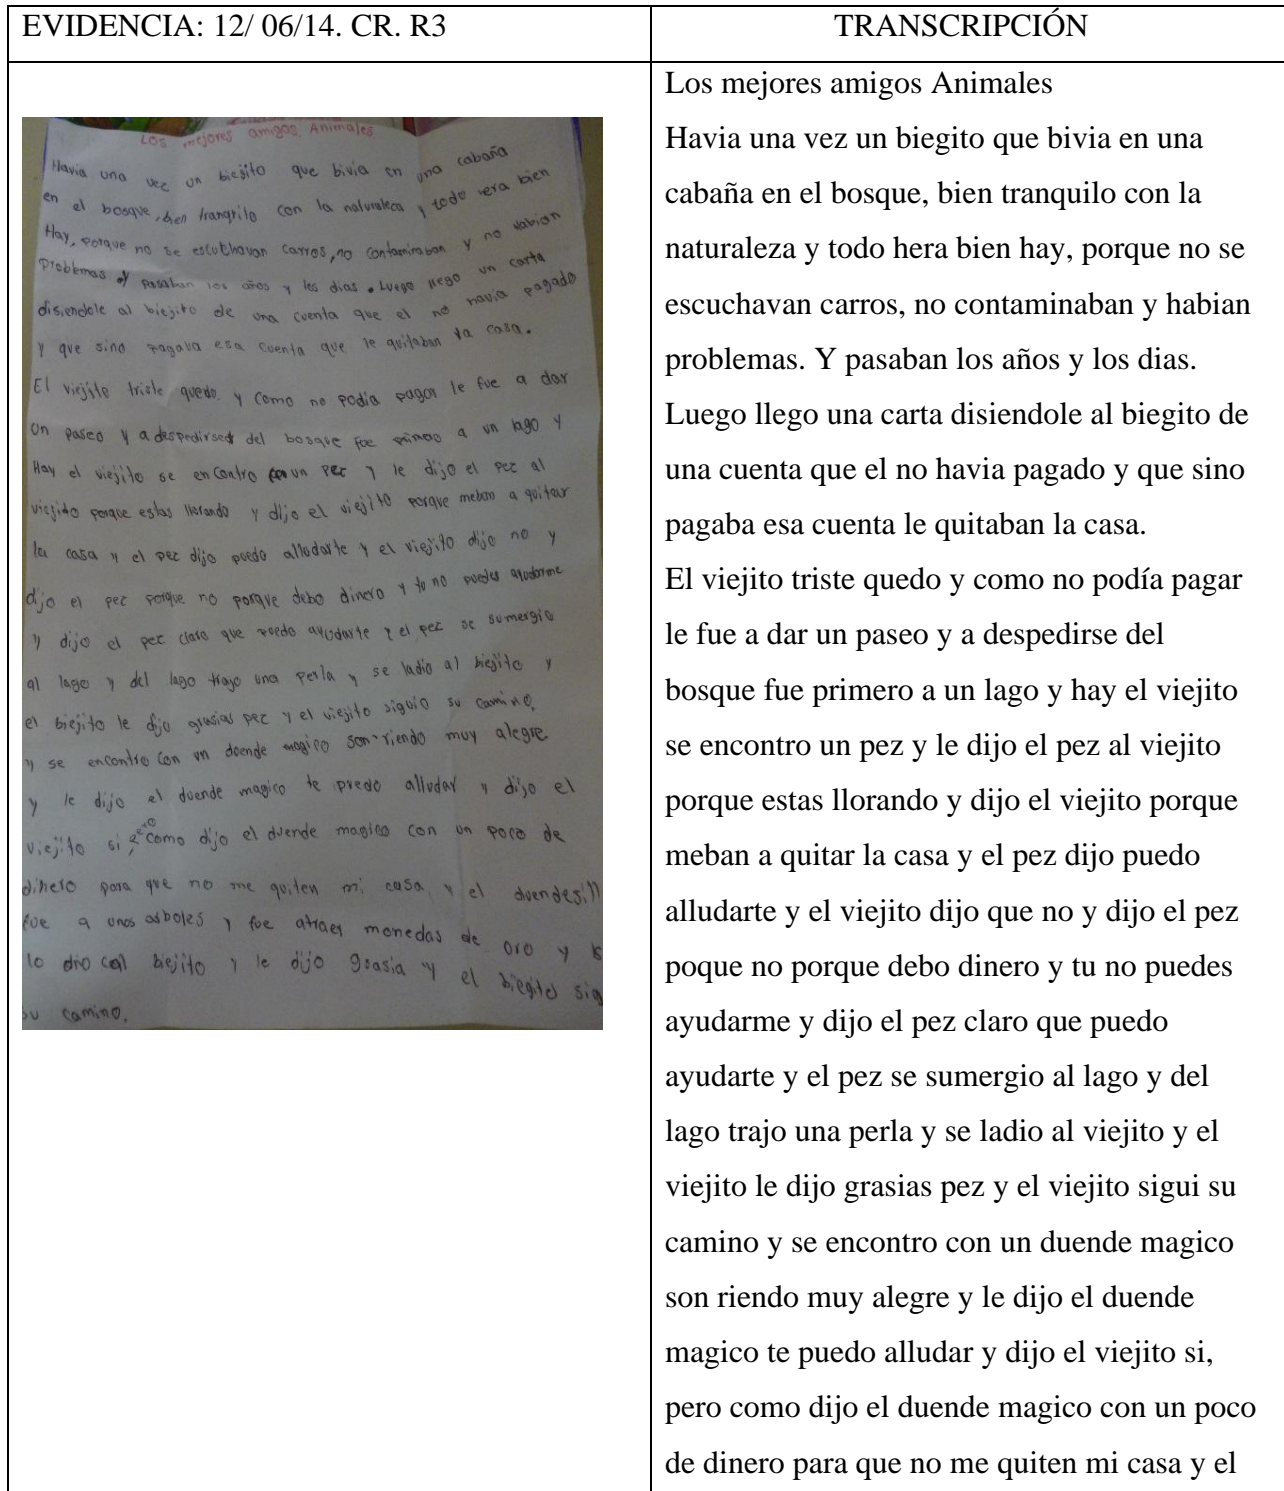 EVIDENCIA: 12/ 06/14. CR. R3
TRANSCRIPCIÓN
Los mejores amigos Animales
Havia una vez un biejito que bivia en una cabaña
en el bosque, bien tranqilo con la naturaleca y todo hera bien
Hay, porque no se escuthavan carros, no contaminaban y no abian
Problemas y pasaban los años y los dias. Luego llego un carta
disiendole al viejito de una cuenta que el no havia pagado
y que sino pagava esa cuenta que le quitaban la casa.
El viejito triste quedo y como no podia pagar le fue a dar
un paseo y a despedirse del bosque fue primero a un lago y
Hay el viejito se encontro un pez y le dijo el pez al
viejito porque estas llorando y dijo el viejito porque meban a quitar
la casa y el pez dijo puedo alludarte y el viejito dijo no y
dijo el pez porque no porque debo dinero y tu no puedes ayudarme
y dijo el pez claro que puedo ayudarte y el pez se sumergio
al lago y del lago trajo una perla y se ladio al biejito y
el biejito le dijo grasias pez y el viejito siguio su camino,
y se encontro con un duende magico son-riendo muy alegre
y le dijo el duende magico te puedo alludar y dijo el
viejito si, pero como dijo el duende magico con un poco de
dinero para que no me quiten mi casa y el duendesill
fue a unos arboles y fue atraer monedas de oro y
lo dio al biejito y le dijo grasia y el biegito sig
su camino.
Los mejores amigos Animales
Havia una vez un biegito que bivia en una
cabaña en el bosque, bien tranquilo con la
naturaleza y todo hera bien hay, porque no se
escuchavan carros, no contaminaban y habian
problemas. Y pasaban los años y los dias.
Luego llego una carta disiendole al biegito de
una cuenta que el no havia pagado y que sino
pagaba esa cuenta le quitaban la casa.
El viejito triste quedo y como no podía pagar
le fue a dar un paseo y a despedirse del
bosque fue primero a un lago y hay el viejito
se encontro un pez y le dijo el pez al viejito
porque estas llorando y dijo el viejito porque
meban a quitar la casa y el pez dijo puedo
alludarte y el viejito dijo que no y dijo el pez
poque no porque debo dinero y tu no puedes
ayudarme y dijo el pez claro que puedo
ayudarte y el pez se sumergio al lago y del
lago trajo una perla y se ladio al viejito y el
viejito le dijo grasias pez y el viejito sigui su
camino y se encontro con un duende magico
son riendo muy alegre y le dijo el duende
magico te puedo alludar y dijo el viejito si,
pero como dijo el duende magico con un poco
de dinero para que no me quiten mi casa y el